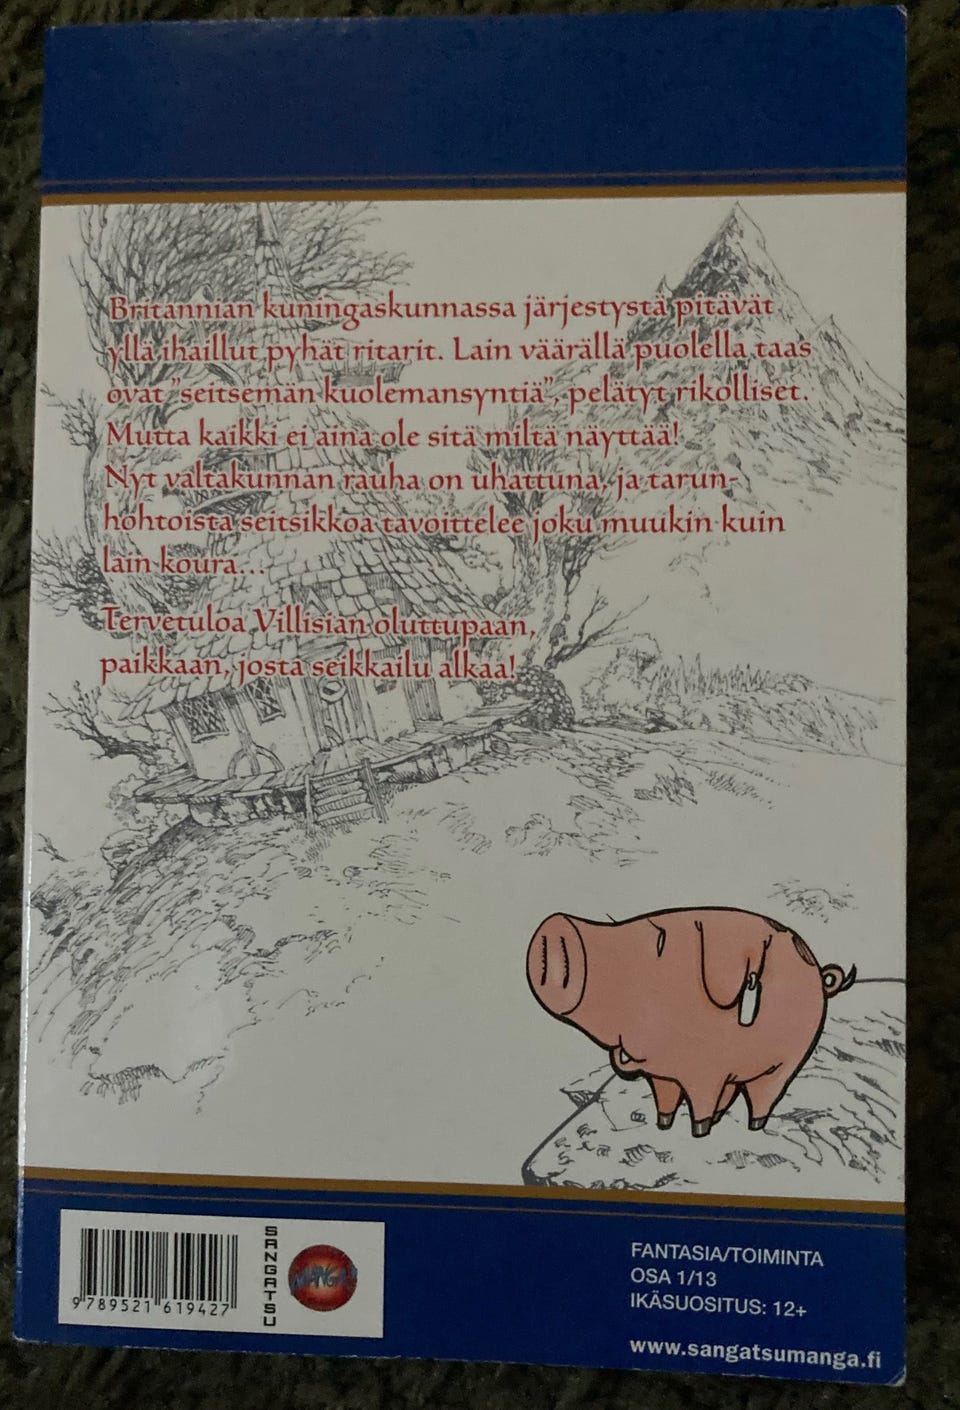 Britannian kuningaskunnassa järjestystä pitävät
yllä ihaillut pyhät ritarit. Lain väärällä puolella taas
ovat "seitsemän kuolemansyntiä", pelätyt rikolliset.
Mutta kaikki ei aina ole sitä miltä näyttää!
Nyt valtakunnan rauha on uhattuna, ja tarun-
hohtoista seitsikkoa tavoittelee joku muukin kuin
lain koura...
Tervetuloa Villisian oluttupaan,
paikkaan, josta seikkailu alkaa!
9 789521 619427
SANGATSU
MANGA!
FANTASIA/TOIMINTA
OSA 1/13
IKÄSUOSITUS: 12+
www.sangatsumanga.fi